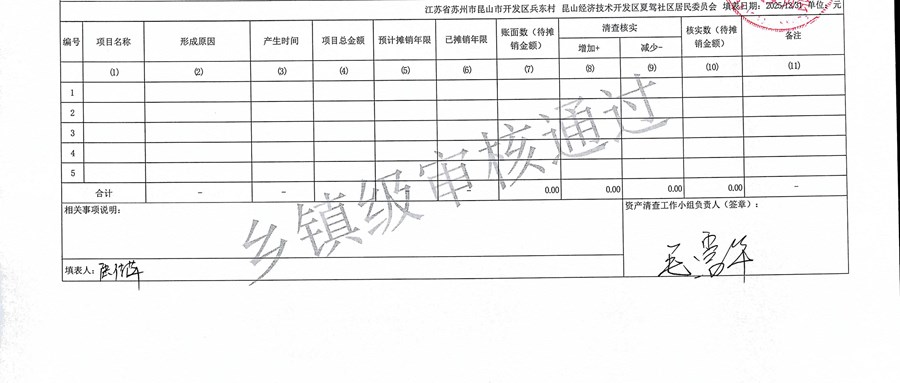 江苏省苏州市昆山市开发区兵东村 昆山经济技术开发区夏驾社区居民委员会 填表日期：2025/12/31 单位：元
编号 项目名称 形成原因 产生时间 项目总金额 预计摊销年限 已摊销年限 账面数（待摊销金额） 清查核实 核实数（待摊销金额） 备注
增加+ 减少-
(1) (2) (3) (4) (5) (6) (7) (8) (9) (10) (11)
1
2
3
4
5
合计 - - - - - 0.00 0.00 0.00 0.00 -
乡镇级审核通过
相关事项说明： 资产清查工作小组负责人（签章）：
填表人：